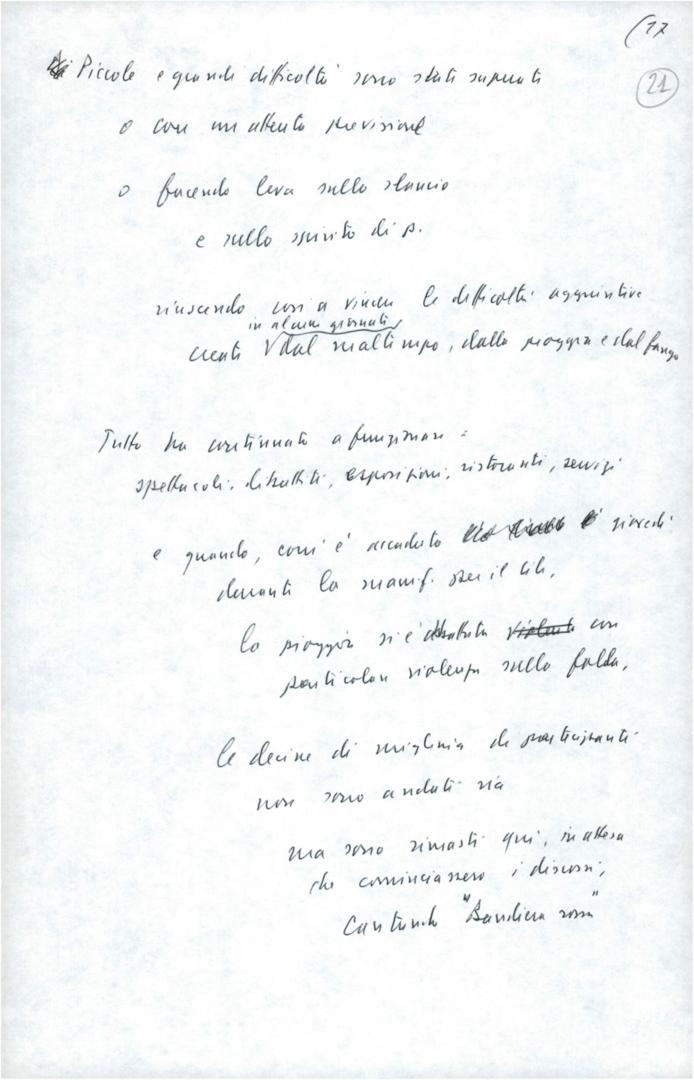 (17
21
Piccole e grandi difficoltà sono stati superati
o con un attenta previsione
o facendo leva sullo slancio
e sullo spirito di p.
riuscendo così a vincere le difficoltà aggiuntive
in alcune giornate
create dal maltempo, dalla pioggia e dal fango
Tutto ha continuato a funzionare:
spettacoli, dibattiti, esposizioni, ristoranti, servizi
e quando, com'è accaduto giovedì
durante la manif. per il
la pioggia si è abbattuta violenta con
particolare violenza sulla folla,
le decine di migliaia di partecipanti
non sono andati via
ma sono rimasti qui, in attesa
che cominciassero i discorsi,
cantando "Bandiera rossa"